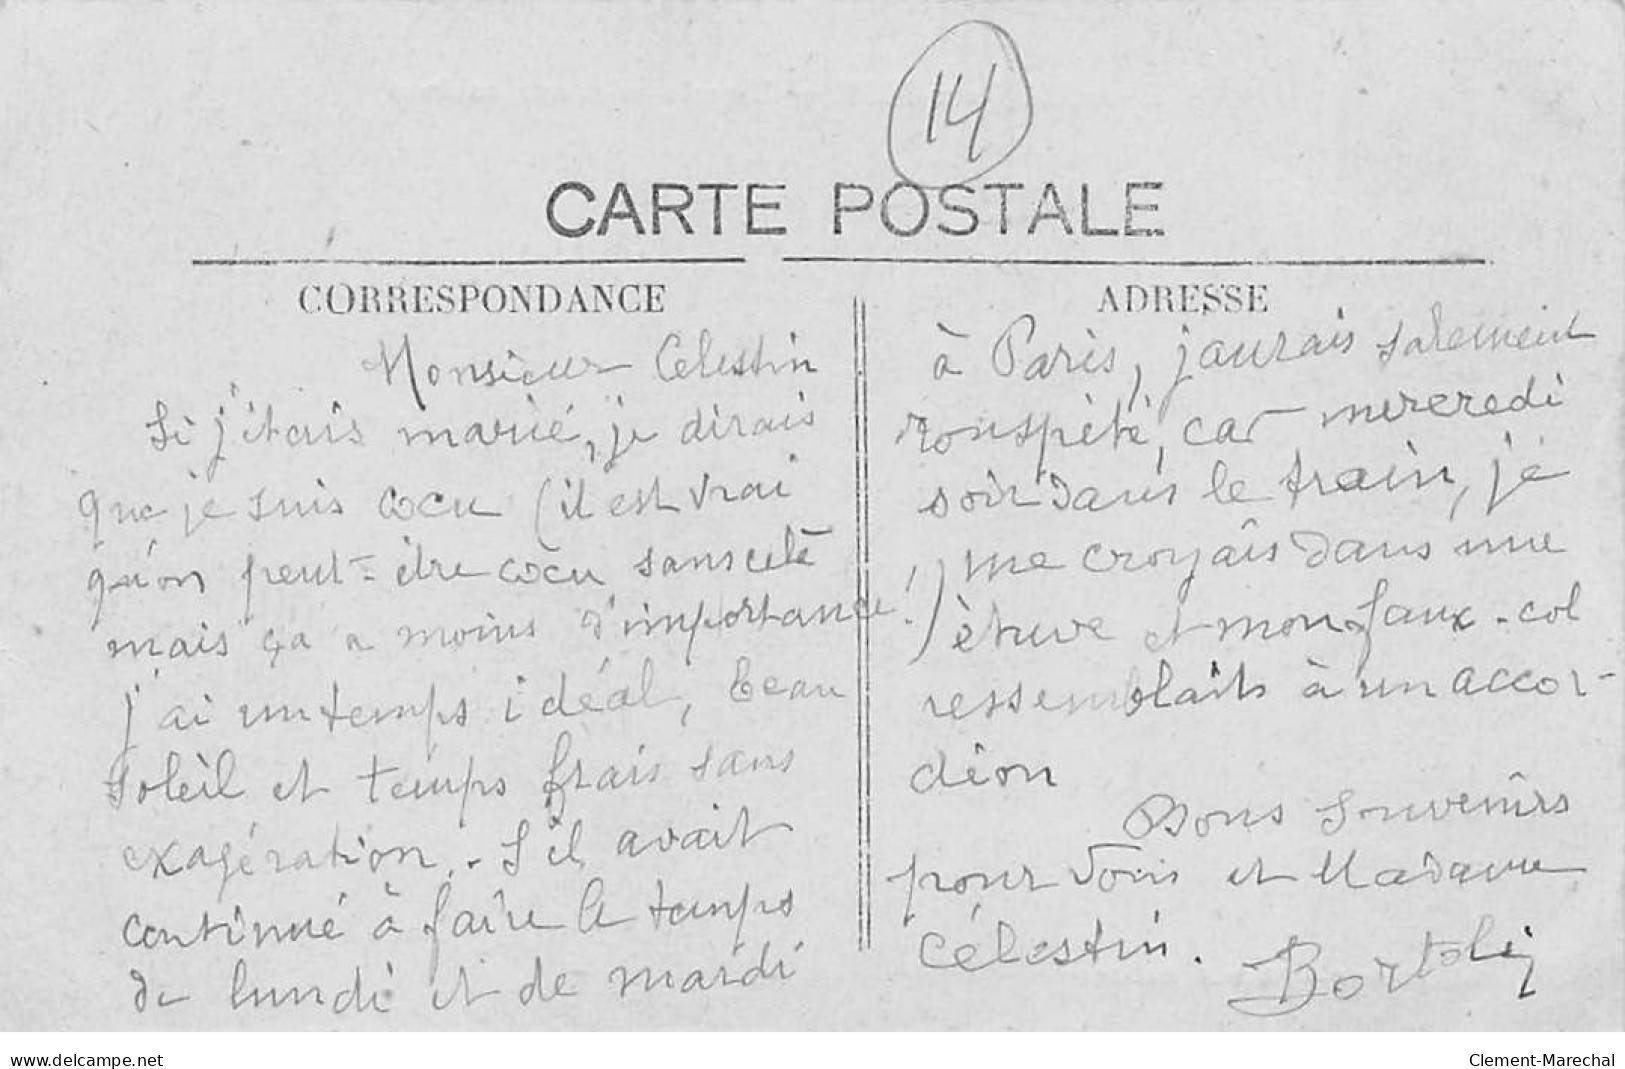 14
CARTE POSTALE
CORRESPONDANCE
Monsieur Célestin
Si j'étais marié, je dirais
que je suis cocu (il est vrai
qu'on peut-être cocu sans cela
mais ça a moins d'importance!)
j'ai un temps idéal, beau
soleil et temps frais sans
exagération. S'il avait
continué à faire le temps
de lundi et de mardi
ADRESSE
à Paris, j'aurais salement
rouspété, car mercredi
soir dans le train, je
me croyais dans une
étuve et mon faux-col
ressemblait à un accor-
déon
Bons souvenirs
pour vous et Madame
Célestin.
Bortoli
www.delcampe.net
Clement-Marechal